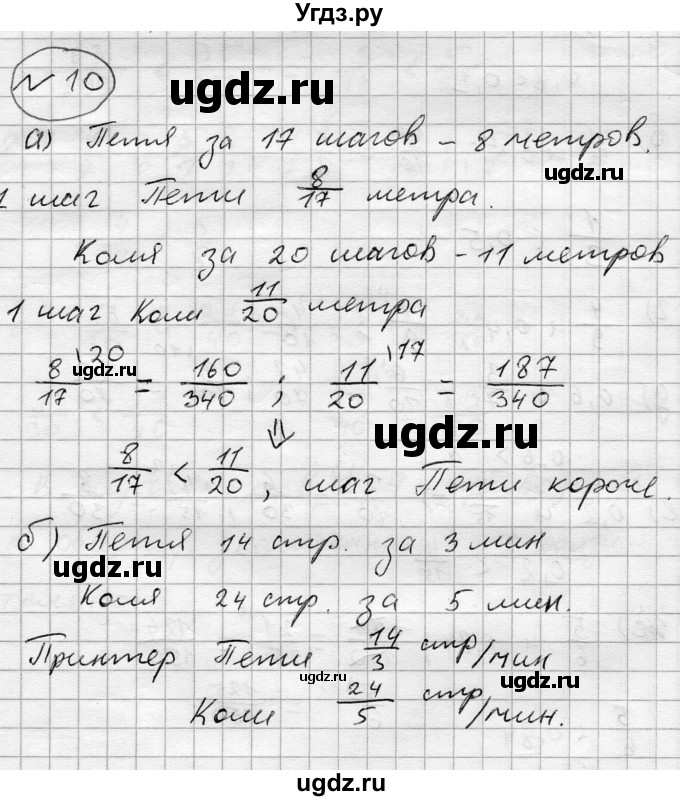 Угдз.ру
№ 10
ugdz.ru
а) Петя за 17 шагов – 8 метров.
ugdz.ru
1 шаг Пети 8/17 метра.
Коля за 20 шагов – 11 метров
1 шаг Коли 11/20 метра
8/17 \20 = 160/340 ; 11/20 \17 = 187/340
ugdz.ru
⇓
ugdz.ru
8/17 < 11/20, шаг Пети короче.
б) Петя 14 стр. за 3 мин
ugdz.ru
Коля 24 стр. за 5 мин.
Принтер Пети 14/3 стр/мин
ugdz.ru
ugdz.ru
Коли 24/5 стр/мин.
ugdz.ru